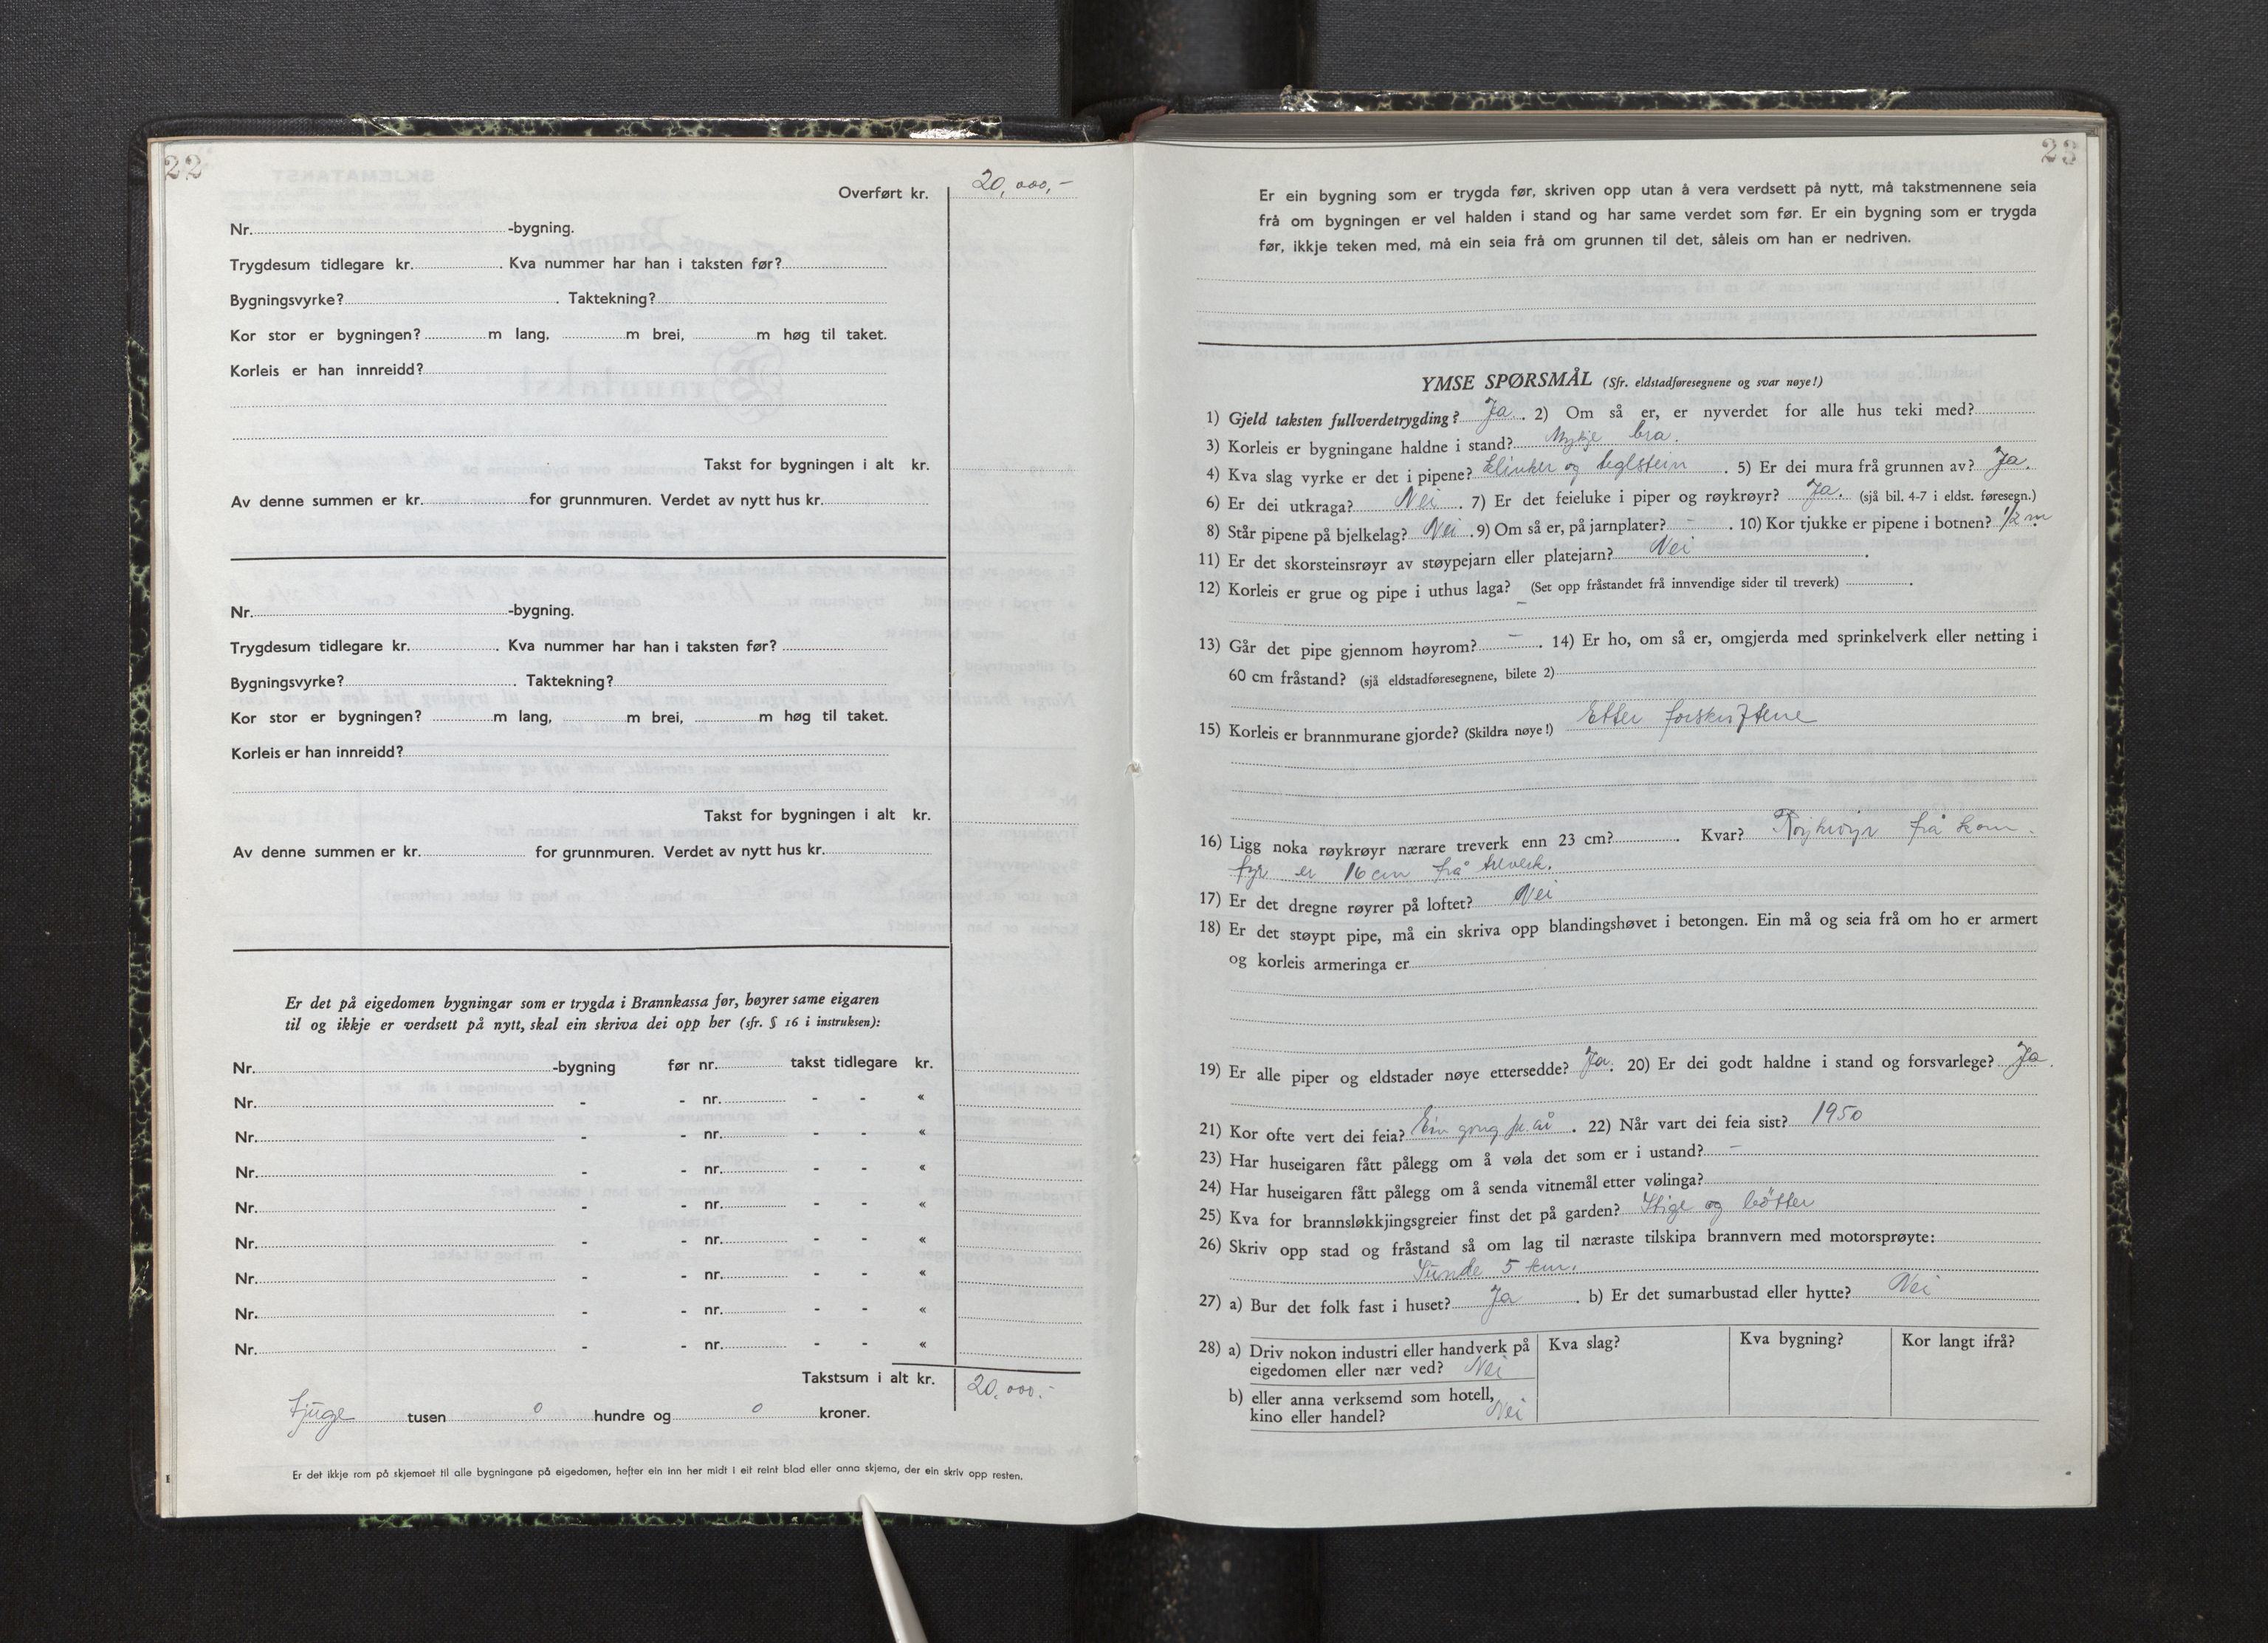 22
Overført kr. 20,000,-
Nr. -bygning.
Trygdesum tidlegare kr. . Kva nummer har han i taksten før?
Bygningsvyrke? . Taktekning?
Kor stor er bygningen? m lang, m brei, m høg til taket.
Korleis er han innreidd?
Takst for bygningen i alt kr.
Av denne summen er kr. for grunnmuren. Verdet av nytt hus kr.
Nr. -bygning.
Trygdesum tidlegare kr. . Kva nummer har han i taksten før?
Bygningsvyrke? . Taktekning?
Kor stor er bygningen? m lang, m brei, m høg til taket.
Korleis er han innreidd?
Takst for bygningen i alt kr.
Av denne summen er kr. for grunnmuren. Verdet av nytt hus kr.
Er det på eigedomen bygningar som er trygda i Brannkassa før, høyrer same eigaren
til og ikkje er verdsett på nytt, skal ein skriva dei opp her (sfr. § 16 i instruksen):
Nr. -bygning før nr. takst tidlegare kr.
Nr. - - nr. - - «
Nr. - - nr. - - «
Nr. - - nr. - - «
Nr. - - nr. - - «
Nr. - - nr. - - «
Nr. - - nr. - - «
Nr. - - nr. - - «
Nr. - - nr. - - «
Takstsum i alt kr. 20,000.-
tjuge tusen 0 hundre og 0 kroner.
Er det ikkje rom på skjemaet til alle bygningane på eigedomen, hefter ein inn her midt i eit reint blad eller anna skjema, der ein skriv opp resten.
23
Er ein bygning som er trygda før, skriven opp utan å vera verdsett på nytt, må takstmennene seia
frå om bygningen er vel halden i stand og har same verdet som før. Er ein bygning som er trygda
før, ikkje teken med, må ein seia frå om grunnen til det, såleis om han er nedriven.
YMSE SPØRSMÅL (Sfr. eldstadføresegnene og svar nøye!)
1) Gjeld taksten fullverdetrygding? Ja. 2) Om så er, er nyverdet for alle hus teki med?
3) Korleis er bygningane haldne i stand? Mykje bra.
4) Kva slag vyrke er det i pipene? klinker og teglstein . 5) Er dei mura frå grunnen av? Ja.
6) Er dei utkraga? Nei . 7) Er det feieluke i piper og røykrøyr? Ja. (sjå bil. 4-7 i eldst. føresegn.)
8) Står pipene på bjelkelag? Nei . 9) Om så er, på jarnplater? - . 10) Kor tjukke er pipene i botnen? 1/2 m.
11) Er det skorsteinsrøyr av støypejarn eller platejarn? Nei .
12) Korleis er grue og pipe i uthus laga? - (Set opp fråstandet frå innvendige sider til treverk) .
13) Går det pipe gjennom høyrom? - . 14) Er ho, om så er, omgjerda med sprinkelverk eller netting i
60 cm fråstand? (sjå eldstadføresegnene, bilete 2)
15) Korleis er brannmurane gjorde? (Skildra nøye!) Etter forskriftene
16) Ligg noka røykrøyr nærare treverk enn 23 cm? . Kvar? Røykrøyr frå kom-
fyr er 16 cm frå treverk.
17) Er det dregne røyrer på loftet? Nei
18) Er det støypt pipe, må ein skriva opp blandingshøvet i betongen. Ein må og seia frå om ho er armert
og korleis armeringa er
19) Er alle piper og eldstader nøye ettersedde? Ja. 20) Er dei godt haldne i stand og forsvarlege? Ja.
21) Kor ofte vert dei feia? Ein gong pr. år . 22) Når vart dei feia sist? 1950
23) Har huseigaren fått pålegg om å vøla det som er i ustand? -
24) Har huseigaren fått pålegg om å senda vitnemål etter vølinga?
25) Kva for brannsløkkjingsgreier finst det på garden? Stige og bøtter
26) Skriv opp stad og fråstand så om lag til næraste tilskipa brannvern med motorsprøyte:
Sunde 5 km.
27) a) Bur det folk fast i huset? Ja . b) Er det sumarbustad eller hytte? Nei
28) a) Driv nokon industri eller handverk på Kva slag? Kva bygning? Kor langt ifrå?
eigedomen eller nær ved? Nei
b) eller anna verksemd som hotell,
kino eller handel? Nei